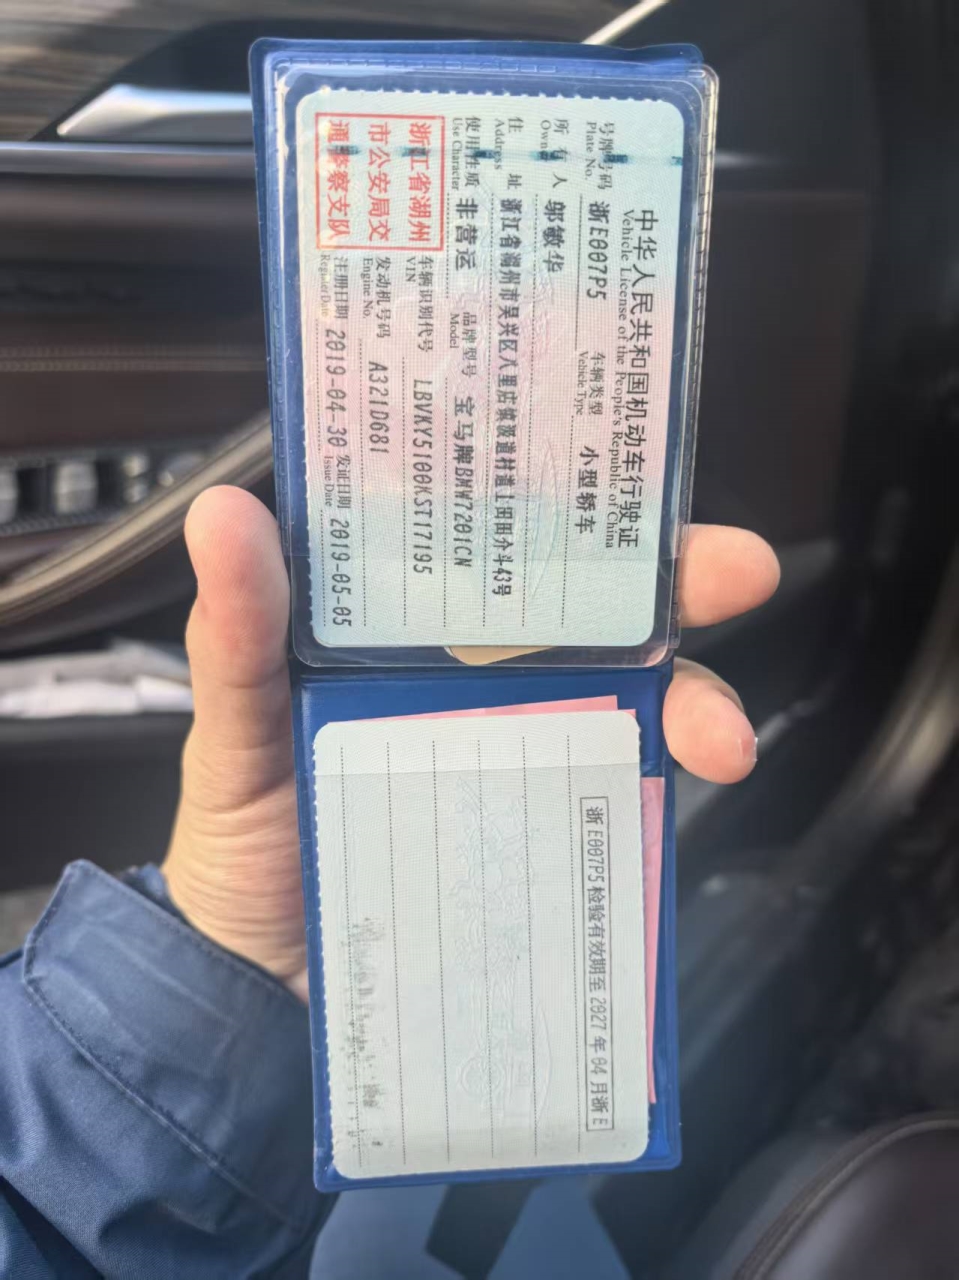 中华人民共和国机动车行驶证
Vehicle License of the People's Republic of China
号牌号码 浙E007P5 车辆类型 小型轿车
Plate No. Vehicle Type
所有人 邬敏华
Owner
住址 浙江省湖州市吴兴区八里店镇 村道 田田 斗43号
Address
使用性质 非营运 品牌型号 宝马牌BMW7201CN
Use Character Model
浙江省湖州
市公安局交
通警察支队
车辆识别代号 LBVKY5100KST17195
VIN
发动机号码 A321D681
Engine No.
注册日期 2019-04-30 发证日期 2019-05-05
Register Date Issue Date
浙E007P5检验有效期至2027年04月浙E